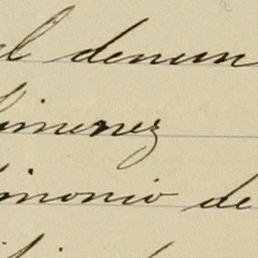 el denun
imenez
imonio de